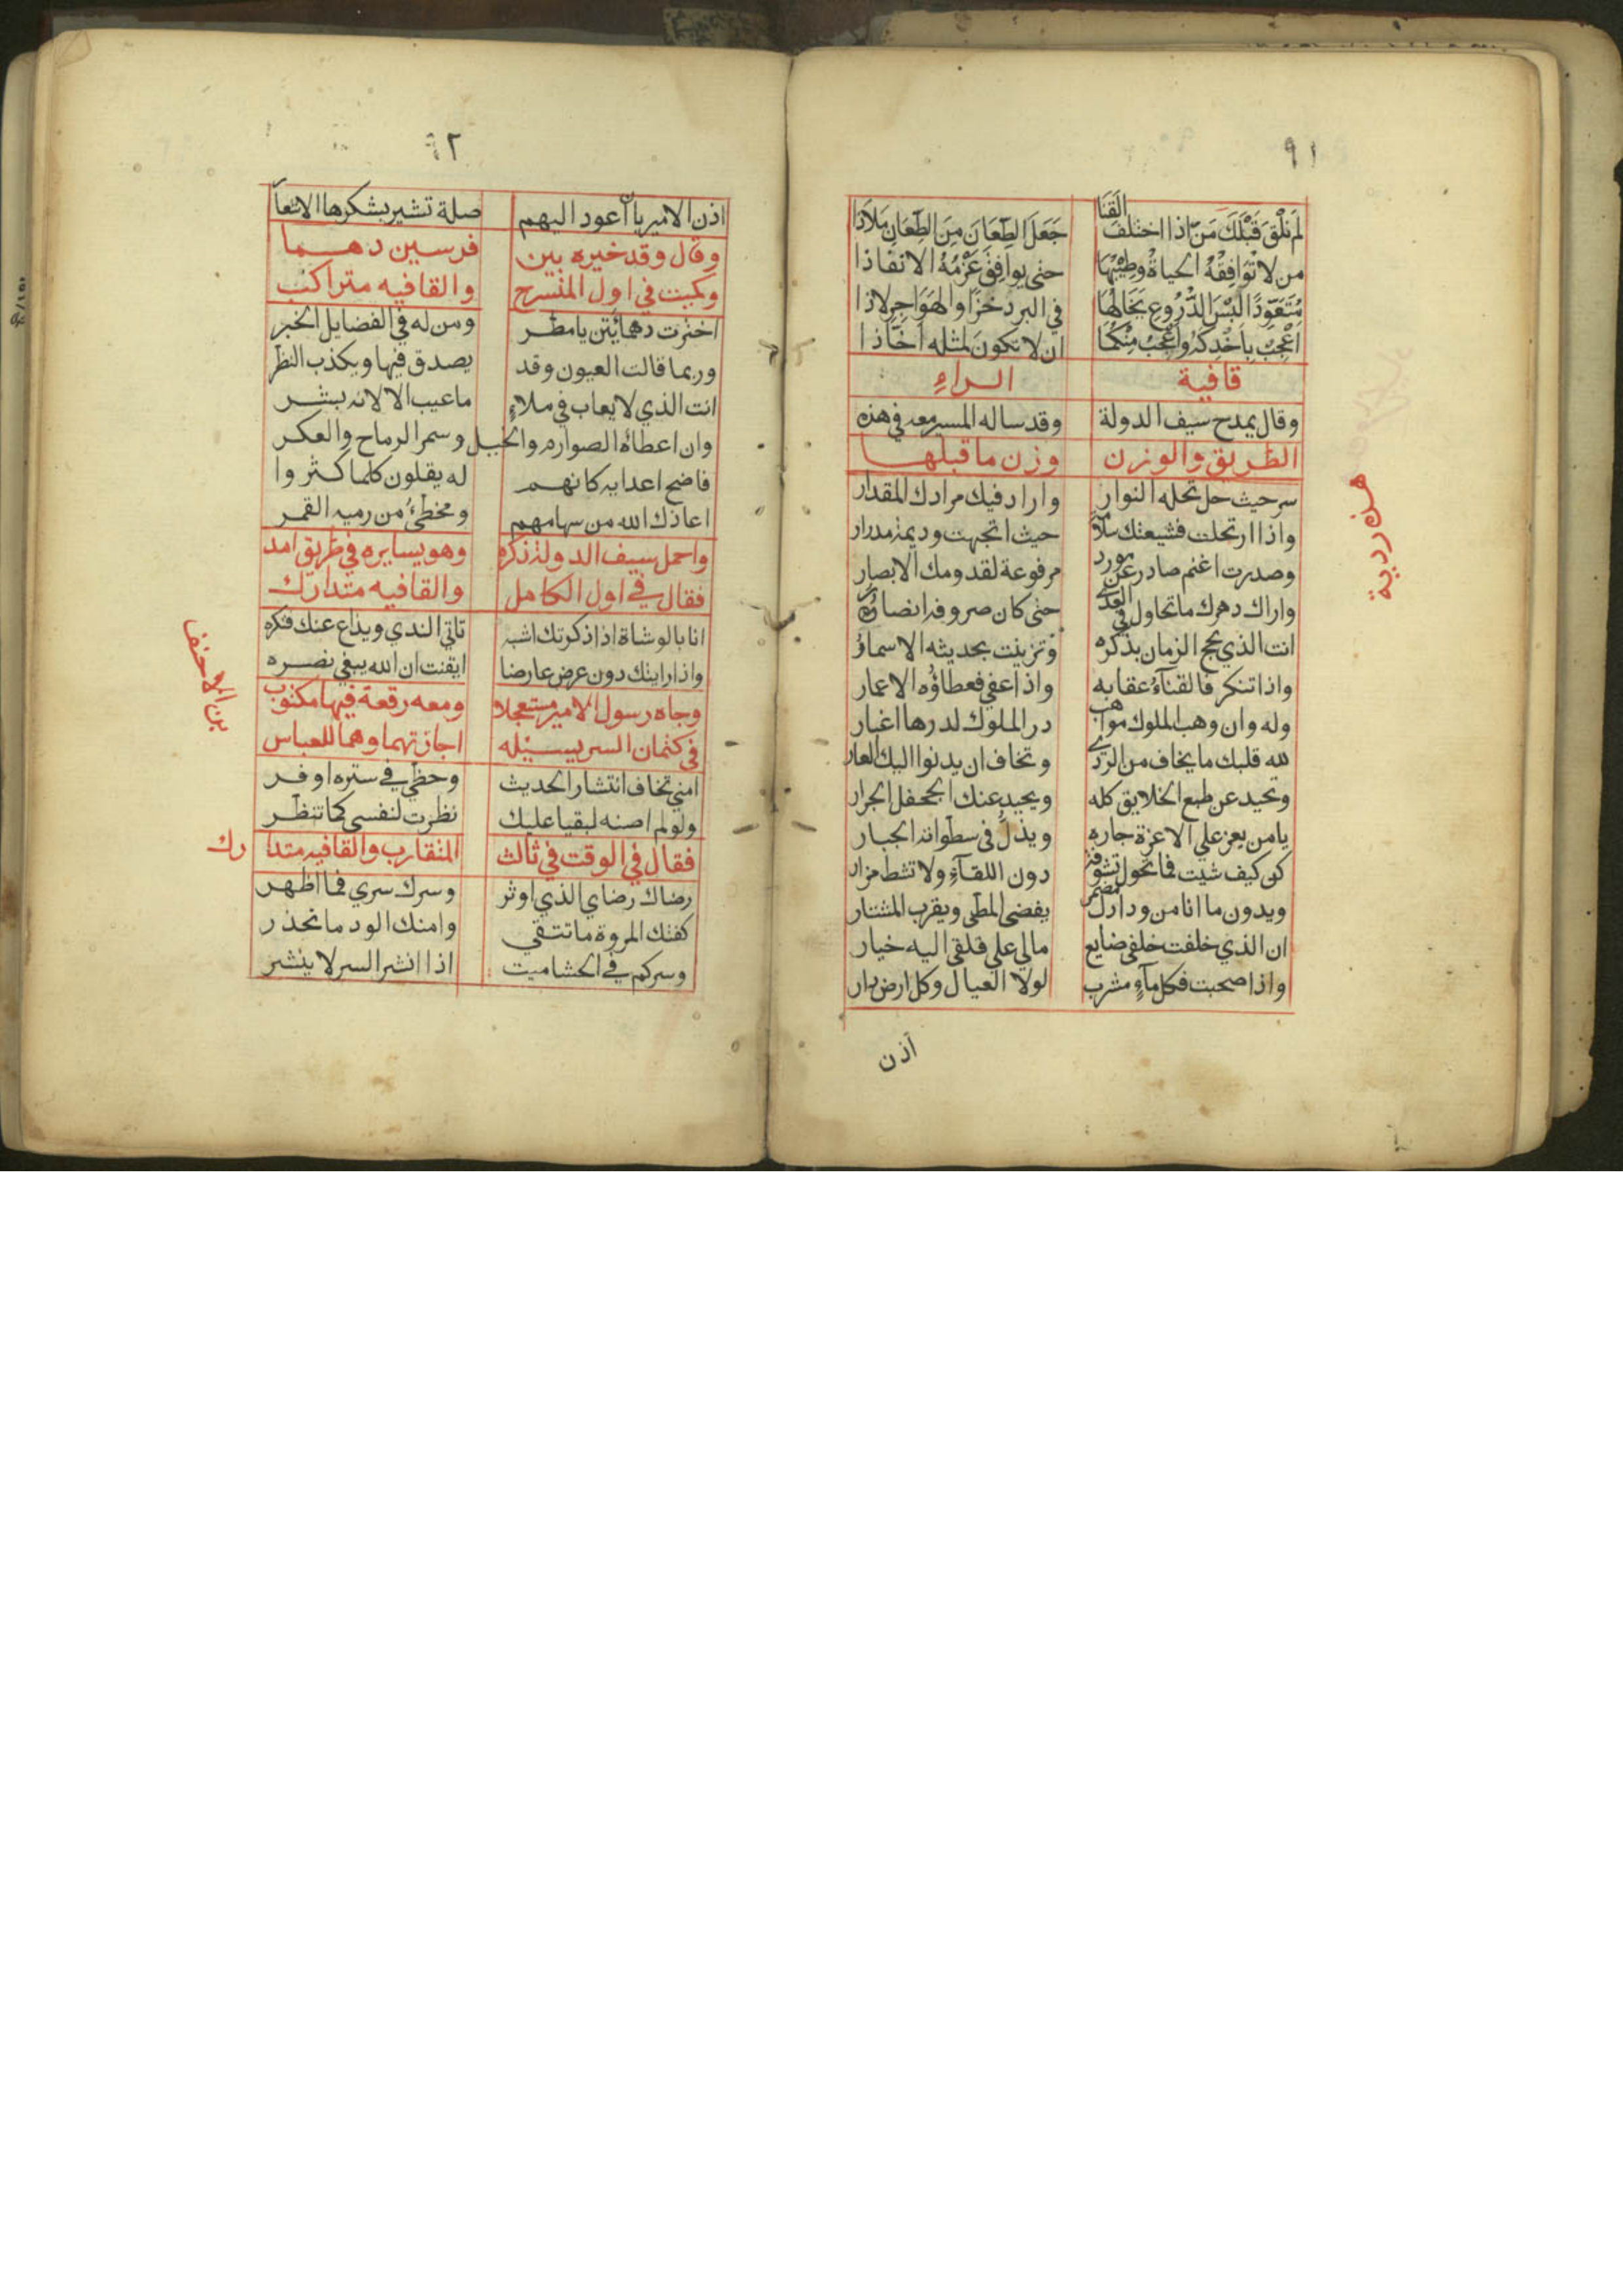 ٩١
لَم نَلْقَ قَبْلَكَ مَنْ اذا اختلف القَنَا جَعَلَ الطِّعَانَ مِنَ الطِّعَانِ مَلاَذَا
من لا تُوَافِقُهُ الحياةُ وطِيْبُهَا حتى يوافِقَ عَزْمُهُ الانفاذا
مُتَعَوِّدًا لُبْسَ الدُّرُوعِ يَخَالُهَا في البرد خزًا والهَوَاجِرِ لاذا
اَعْجِبْ بِاَخْذِكَهُ واَعْجَبْ مِنْكُمَا ان لا تكونَ لمثله اَخَّاذا
قافية الراءِ
وقال يمدح سيف الدولة وقد ساله المسير معه في هذه
الطريق والوزن وزن ما قبلها
هذردية
سر حيث حل تحله النوار واراد فيك مرادك المقدار
واذا ارتحلت فشيعتك سلامة حيث اتجهت وديمة مدرار
وصدرت اغنم صادر عن مورد مرفوعة لقدومك الابصار
واراك دهرك ما تحاول في العدى حتى كان صروفه انصاره
انت الذي بجح الزمان بذكره وتزينت بحديثه الاسمارُ
واذا تنكر فالفناءُ عقابه واذا عفي فعطاؤه الاعمار
وله وان وهب الملوك مواهب در الملوك لدرها اغبار
لله قلبك ما يخاف من الردى وتخاف ان يدنوا اليك العار
وتحيد عن طبع الخلايق كله ويحيد عنك الجحفل الجرار
يا من يعز علي الاعزة جاره ويذلُّ في سطواته الجبار
كن كيف شيت فما تحول تنوفة دون اللقآءِ ولا تشط مزار
وبدون ما انا من ودادك مضمر يفضى المطى ويقرب المستار
ان الذي خلفت خلفي ضايع مالي علي قلقي اليه خيار
واذا صحبت فكل مآءٍ مشرب لولا العيال وكل ارض دار
اذن
٩٢
اذن الامير بان اعود اليهم صلة تشير بشكرها الاشعار
وقال وقد خيره بين فرسين دهما
وكميت في اول المنسرح والقافيه متراكب
اخترت دهمائتين يا مطر ومن له في الفضايل الخبر
وربما قالت العيون وقد يصدق فيها ويكذب النظر
انت الذي لا يعاب في ملاءٍ ما عيب الا لانه بشر
وان اعطاه الصوارم والخيل وسمر الرماح والعكر
فاضح اعدايه كانهم له يقلون كلما كثروا
اعاذك الله من سهامهم ومخطئُ من رميه القمر
واحمل سيف الدولة ذكره وهو يسايره في طريق امد
فقال في اول الكامل والقافيه متدارك
انا بالوشاة اذا ذكرتك اشبه تاتي الندي ويذاع عنك فتكره
واذا رايتك دون عرض عارضا ايقنت ان الله يبغي نصره
وجاه رسول الامير مستعجلا ومعه رقعة فيها مكتوب
في كتمان السر يسيله اجازتهما وهما للعباس
بن الاحنف
امني تخاف انتشار الحديث وحظي في ستره اوفر
ولو لم اصنه لبقيا عليك نظرت لنفسي كما تنظر
فقال في الوقت في ثالث المتقارب والقافيه متدارك
رضاك رضاي الذي اوثر وسرك سري فما اظهر
كفتك المروة ما تتقي وامنك الود ما تحذر
وسركم في الحشا ميت اذا انشر السر لا ينشر